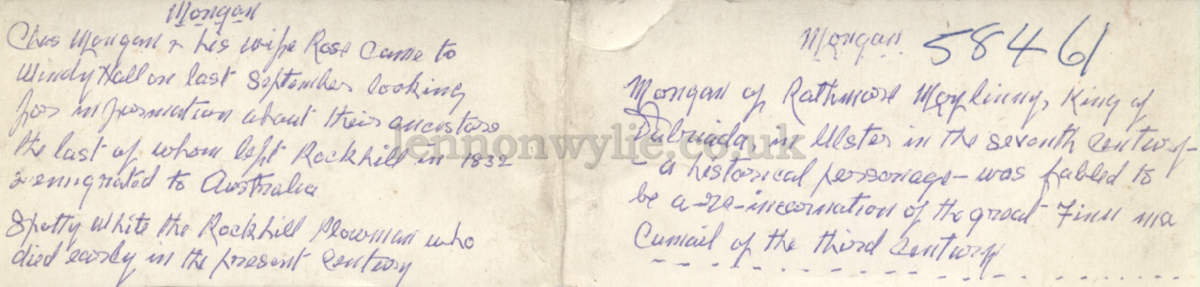 Mongan
Chas Mongan & his wife Rose came to
Windy Hall on last September looking
for information about their ancestors
the last of whom left Rockhill in 1832
& emigrated to Australia
Spotty White the Rockhill Plowman who
died early in the present century
Mongan 58461
Mongan of Rathmore Moylinny, King of
Dalriada, in Ulster in the seventh century –
– a historical personage – was fabled to
be a re-incarnation of the great Finn ma
Cumail of the third century
lennonwylie.co.uk